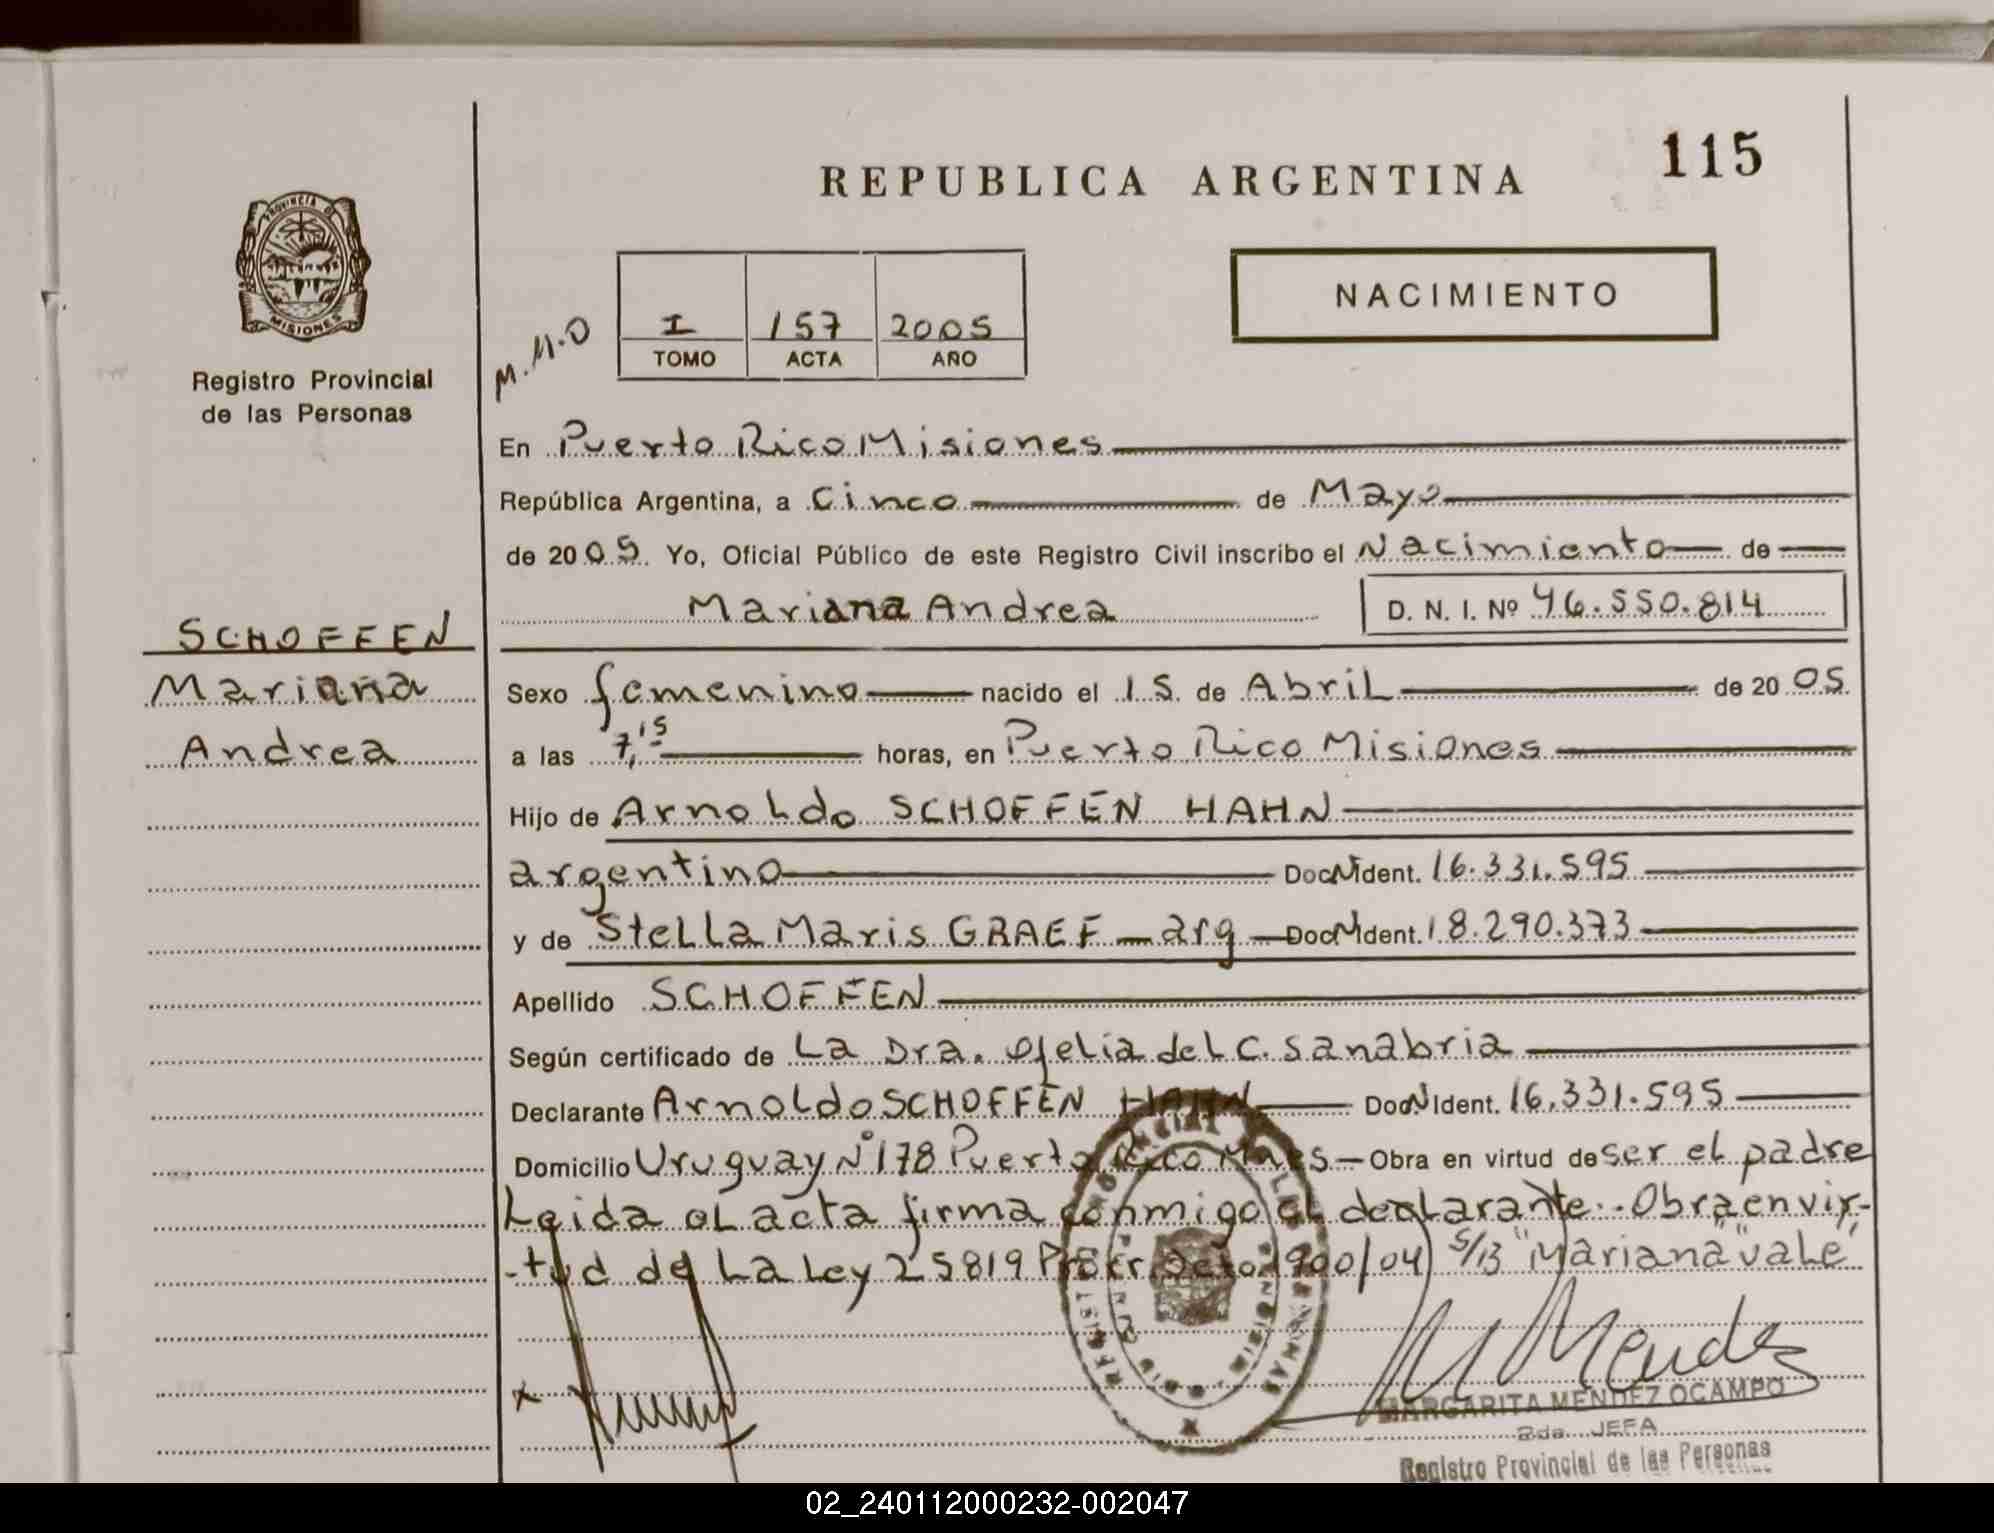 115
REPUBLICA ARGENTINA
PROVINCIA DE
MISIONES
Registro Provincial
de las Personas
NACIMIENTO
M.M.O
I 157 2005
TOMO ACTA AÑO
En Puerto Rico Misiones
República Argentina, a Cinco de Mayo
de 2005. Yo, Oficial Público de este Registro Civil inscribo el Nacimiento de
Mariana Andrea D. N. I. Nº 46.550.814
SCHOFFEN
Mariana
Andrea
Sexo femenino nacido el 15 de Abril de 2005
a las 7,15 horas, en Puerto Rico Misiones
Hijo de Arnoldo SCHOFFEN HAHN
argentino Doc N Ident. 16.331.595
y de Stella Maris GRAEF - arg - Doc N Ident. 18.290.373
Apellido SCHOFFEN
Según certificado de La Dra. Ofelia del C. Sanabria
Declarante Arnoldo SCHOFFEN HAHN Doc N Ident. 16.331.595
Domicilio Uruguay Nº 178 Puerto Rico Mnes - Obra en virtud de ser el padre
Leida el acta firma conmigo el declarante.. Obra en vir-
-tud de La Ley 25819 Prorr. Dcto 1900/04 S/B "Mariana" vale
M Mendez
MARGARITA MENDEZ OCAMPO
2da. JEFA
Registro Provincial de las Personas
02_240112000232-002047